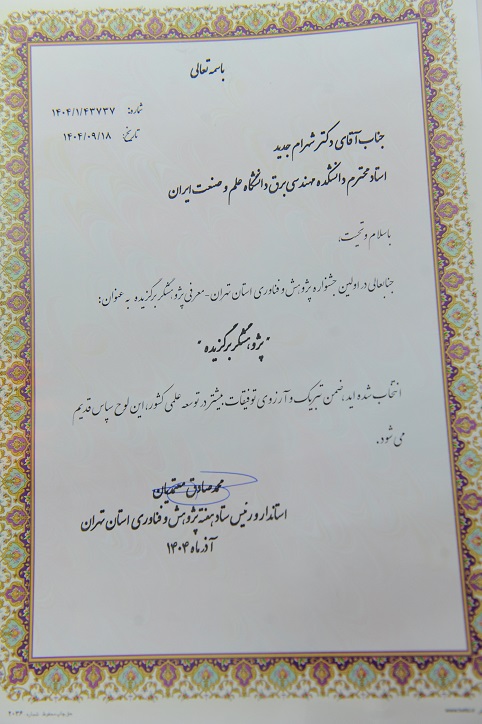 باسمه تعالی
شماره: ۱۴۰۴/۱/۴۳۷۳۷
تاریخ: ۱۴۰۴/۰۹/۱۸
جناب آقای دکتر شهرام جدید
استاد محترم دانشکده مهندسی برق دانشگاه علم و صنعت ایران
با سلام و تحیت،
جنابعالی در اولین جشنواره پژوهش و فناوری استان تهران - معرفی پژوهشگر برگزیده به عنوان:
"پژوهشگر برگزیده"
انتخاب شده اید، ضمن تبریک و آرزوی توفیقات بیشتر در توسعه علمی کشور، این لوح سپاس تقدیم
می شود.
محمد صادق معتمدیان
استاندار و رئیس ستاد هفته پژوهش و فناوری استان تهران
آذر ماه ۱۴۰۴